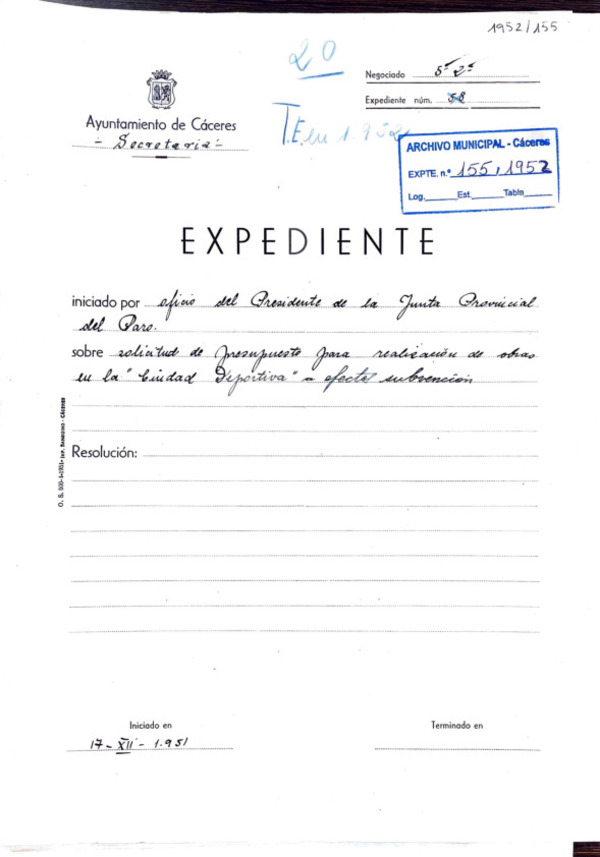 1952/155
20
Negociado
Expediente núm. 58
T.E. en 1.952
Ayuntamiento de Cáceres
- Secretaria -
ARCHIVO MUNICIPAL - Cáceres
EXPTE. n.º 155, 1952
Log. Est. Tabla
EXPEDIENTE
iniciado por oficio del Presidente de la Junta Provincial
del Paro.
sobre solicitud de presupuesto para realización de obras
en la "Ciudad Deportiva" a efectos subvención
Resolución:
O. S. 500-1-1951-IMP. SANGUINO - CÁCERES
Iniciado en
17 - XII - 1.951
Terminado en